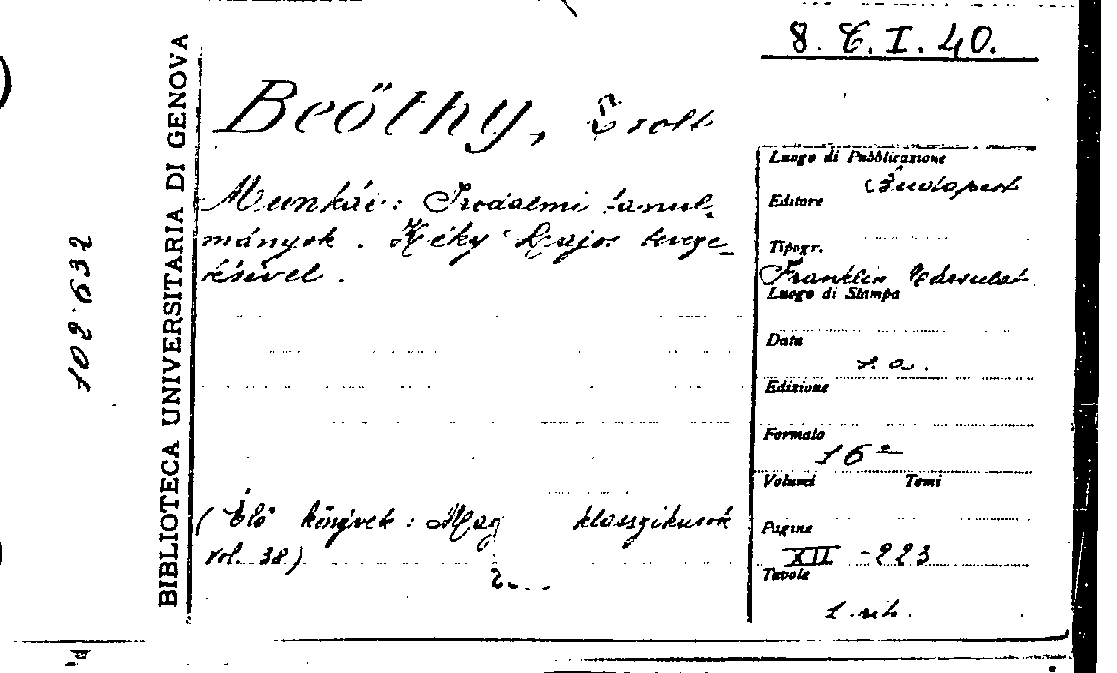 8. E. I. 40.
BIBLIOTECA UNIVERSITARIA DI GENOVA
102632
Beőthy, Zsolt
Munkái: Irodalmi tanul-
mányok. Kéky Lajos beveze-
tésével.
(Élő könyvek: Mag klasszikusok
vol. 38)
Luogo di Pubblicazione
Budapest
Editore
Tipogr.
Franklin Társulat
Luogo di Stampa
Data
s. a.
Edizione
Formato
16°
Volumi Tomi
Pagine
XII - 223
Tavole
1 rit.